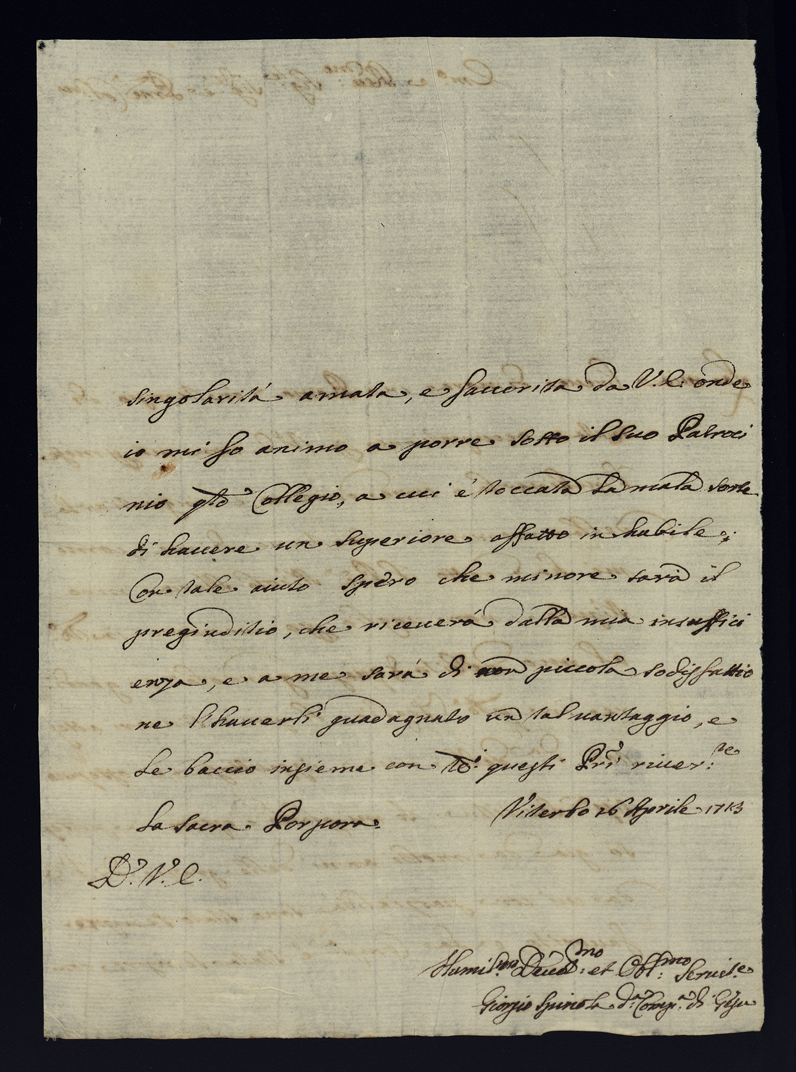 singolarità amata, e favorita da V.E: onde
io mi fo animo a porre sotto il suo Patroci
nio qto Collegio, a cui é toccata la mala sorte
di havere un superiore affatto inhabile;
Con tale aiuto spero che minore sarà il
pregiuditio, che riceverá dalla mia insuffici
enza, e a me sará di non piccola sodisfattio
ne l'haverli guadagnato un tal vantaggio, e
le baccio insieme con tti questi Pri river:te
la sacra Porpora. Viterbo 16 Aprile 1713
D. V. E.
Humil:mo Devot:mo et Obl:mo Servit.e
Giorgio Spinola d.a Comp.a di Giesu